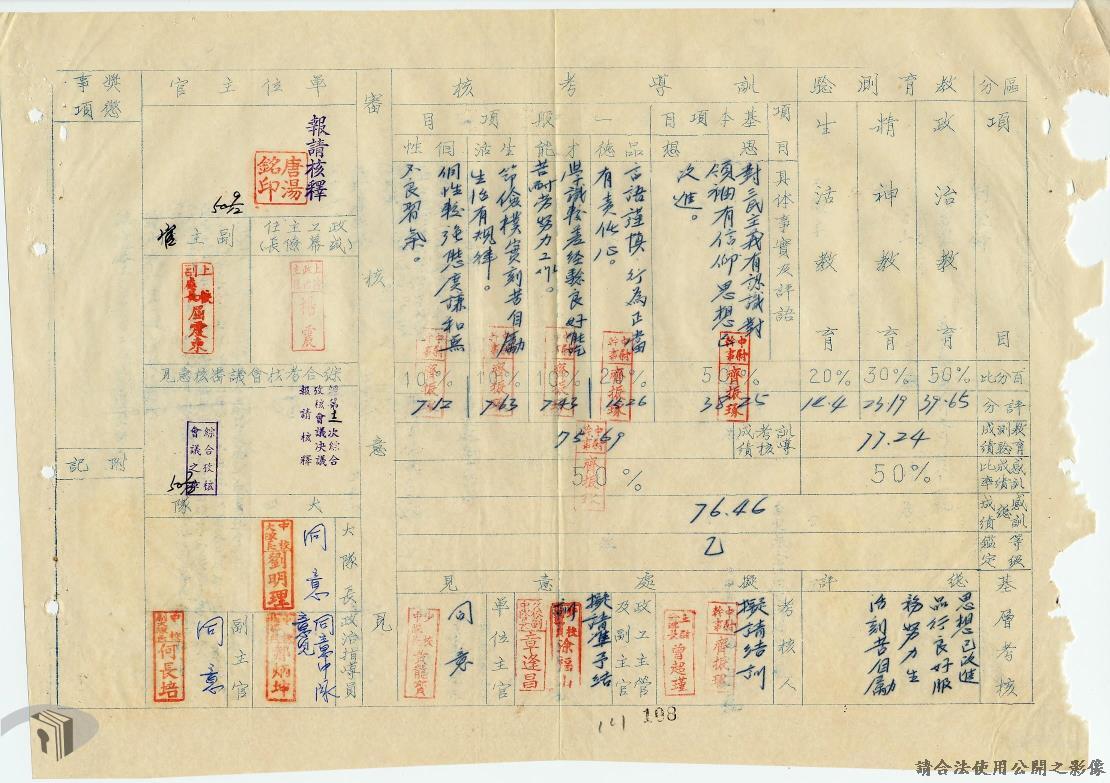 區分
項目
百分比
評分
教育測驗
政治教育
50%
39.65
精神教育
30%
23.19
生活教育
20%
14.4
教育測驗成績
77.24
感訓成績比率
50%
訓導考核
項目
具體事實及評語
基本項目
思想
對三民主義有認識對
領袖有信仰思想已
改進。
50%
38.25
一般項目
品德
言語謹慎行為正當
有責任心。
20%
15.26
才能
學識較差經驗良好能
苦耐勞努力工作。
10%
7.43
生活
節儉樸實刻苦自勵
生活有規律。
10%
7.63
個性
個性較強態度謙和無
不良習氣。
10%
7.12
訓導考核成績
75.69
50%
感訓總成績
76.46
等級鑑定
乙
基層考核
總評
思想已改進
品行良好服
務努力生
活刻苦自勵
擬處意見
考核人
擬請結訓
中尉幹事齊振琢
政工主管及副主官
曾超瑾
擬請准予結
訓
單位主官
章逢昌
同意
審核意見
大隊
大隊長
同意
中校大隊長劉明理
政治指導員
同意中隊
意見
副主官
同意
中校副大隊長何長培
綜合考核會議審核意見
經第 次綜合
考核會議決議
報請核釋
綜合考核會議之章
單位主官
報請核釋
唐湯銘印
50 9/12
政工主任(政戰幕僚長)
楊震
副主官
上校副處長屈震東
獎懲事項
附記
108
請合法使用公開之影像